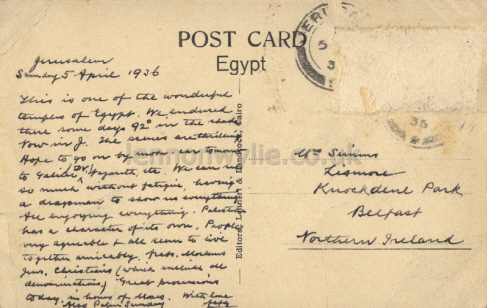 POST CARD
Egypt
Jerusalem
Sunday 5 April 1936
This is one of the wonderful
temples of Egypt. We endured
there some days 92° in the shade
Now in J. The scenes are thrilling
Hope to go on by motor car tomorrow
to Galilee, Nazareth, etc. We can see
so much without fatigue, having
a dragoman to show us everything
All enjoying everything. Palestine
has a character of its own. People
very agreeable & all seem to live
together amicably. Arabs, Moslems
Jews, Christians (which includes all
denominations) Great processions
today in honor of Mary. With love
Also Palm Sunday
Editors, Lehnert & Landrock, Cairo
Mrs Simms
Lismore
Knockdene Park
Belfast
Northern Ireland
JERUSALEM
5
36
lennonwylie.co.uk